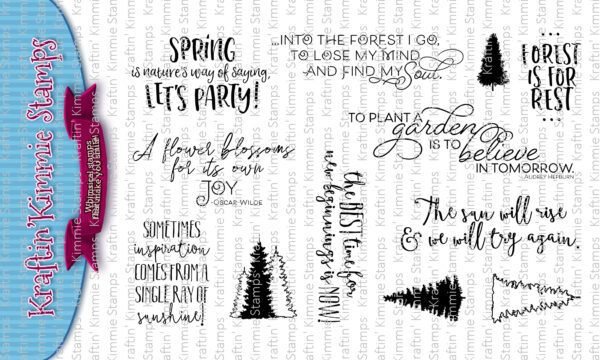 Kraftin' Kimmie Stamps
Whimsical stamps
that make you smile
SPRING
is nature's way of saying,
LET'S PARTY!
...INTO THE FOREST I GO,
TO LOSE MY MIND
AND FIND MY Soul.
...
FOREST
IS FOR
REST
...
TO PLANT A
garden
IS TO
believe
IN TOMORROW.
-AUDREY HEPBURN
A flower blossoms
for its own
JOY
-OSCAR WILDE
the BEST time for
new beginnings is NOW!
SOMETIMES
inspiration
COMES FROM A
SINGLE RAY OF
sunshine!
The sun will rise
& we will try again.